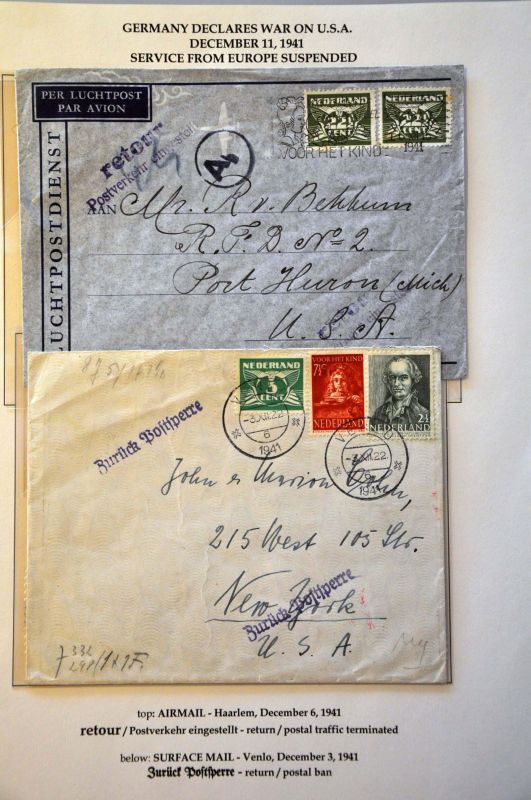 GERMANY DECLARES WAR ON U.S.A.
DECEMBER 11, 1941
SERVICE FROM EUROPE SUSPENDED
PER LUCHTPOST
PAR AVION
LUCHTPOSTDIENST
retour
Postverkehr eingestellt
A,
NEDERLAND
22½
CENT
NEDERLAND
22½
CENT
VOOR HET KIND
1941
AAN Mr. R. v. Bekkum
R. F. D. No 2.
Port Huron (Mich)
U. S. A.
retour
NEDERLAND
5
CENT
VOOR HET KIND
7½
NEDERLAND
2½
NEDERLAND
-3.XII.22
6
1941
-3.XII.22
6
1941
Zurück Postsperre
John & Marion Cohn,
215 West 105 Str.
New York
Zurück Postsperre
U. S. A.
top: AIRMAIL - Haarlem, December 6, 1941
retour / Postverkehr eingestellt - return / postal traffic terminated
below: SURFACE MAIL - Venlo, December 3, 1941
Zurück Postsperre - return / postal ban